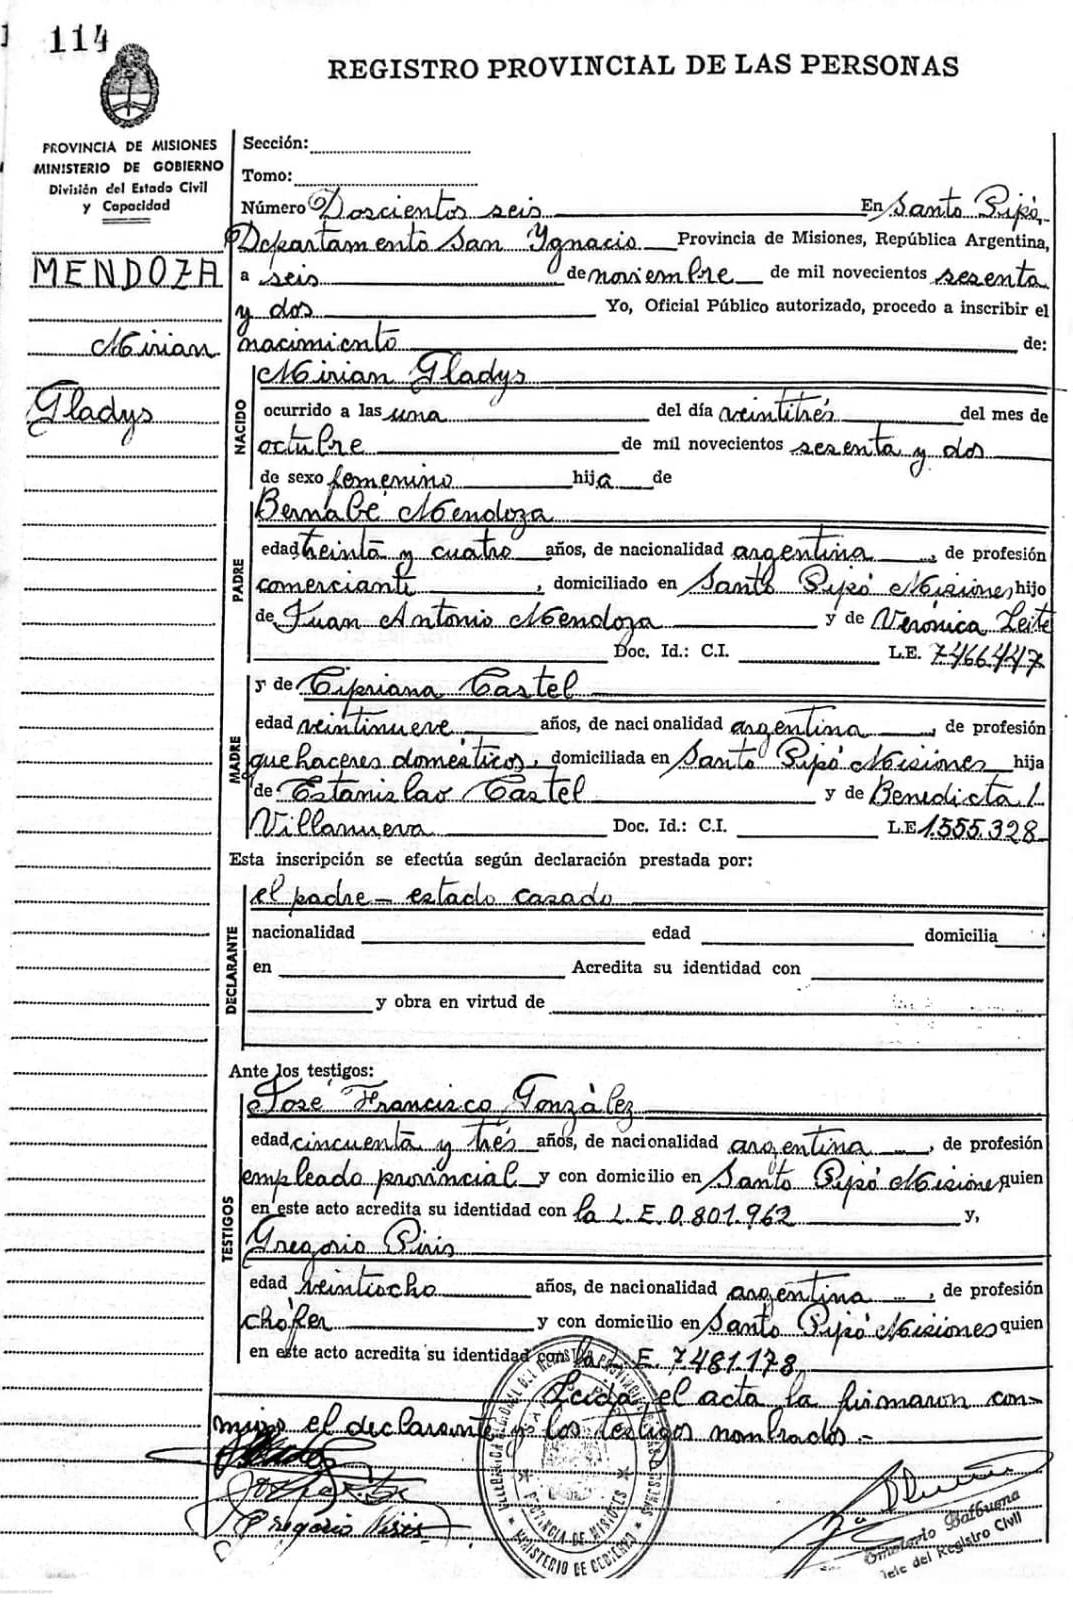 114
REGISTRO PROVINCIAL DE LAS PERSONAS
PROVINCIA DE MISIONES
MINISTERIO DE GOBIERNO
División del Estado Civil
y Capacidad
MENDOZA
Mirian
Gladys
Sección:
Tomo:
Número Doscientos seis En Santo Pipó,
Departamento San Ygnacio Provincia de Misiones, República Argentina,
a seis de noviembre de mil novecientos sesenta
y dos Yo, Oficial Público autorizado, procedo a inscribir el
nacimiento de:
NACIDO
Mirian Gladys
ocurrido a las una del día veintitrés del mes de
octubre de mil novecientos sesenta y dos
de sexo femenino hija de
PADRE
Bernabé Mendoza
edad treinta y cuatro años, de nacionalidad argentina, de profesión
comerciante, domiciliado en Santo Pipó Misiones hijo
de Juan Antonio Mendoza y de Verónica Leite
Doc. Id.: C.I. L.E. 7466447
MADRE
y de Cipriana Castel
edad veintinueve años, de nacionalidad argentina, de profesión
quehaceres domésticos, domiciliada en Santo Pipó Misiones hija
de Estanislao Castel y de Benedicta
Villanueva Doc. Id.: C.I. L.E 1.555.328
Esta inscripción se efectúa según declaración prestada por:
DECLARANTE
el padre - estado casado
nacionalidad edad domicilia
en Acredita su identidad con
y obra en virtud de
Ante los testigos:
TESTIGOS
José Francisco González
edad cincuenta y trés años, de nacionalidad argentina, de profesión
empleado provincial y con domicilio en Santo Pipó Misiones quien
en este acto acredita su identidad con la L.E. 0.801.962 y,
Gregorio Piris
edad veintiocho años, de nacionalidad argentina, de profesión
chófer y con domicilio en Santo Pipó Misiones quien
en este acto acredita su identidad con la L.E. 7481.178
Leída el acta la firmaron con-
migo el declarante y los testigos nombrados.-
Gregorio Piris
PROVINCIA DE MISIONES
MINISTERIO DE GOBIERNO
Balbuena
Jefe del Registro Civil